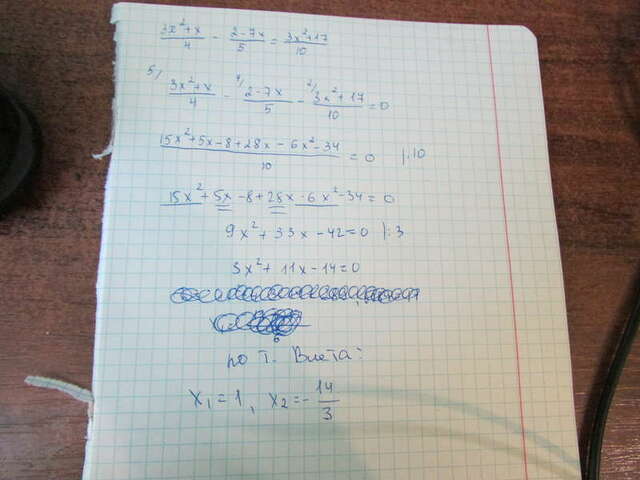 (3x²+x)/4 - (2-7x)/5 = (3x²+17)/10
5/ (3x²+x)/4 - 4/ (2-7x)/5 - 2/ (3x²+17)/10 = 0
(15x²+5x-8+28x-6x²-34)/10 = 0 |·10
15x²+5x-8+28x-6x²-34=0
9x²+33x-42=0 |:3
3x²+11x-14=0
по т. Виета:
x₁=1, x₂=-14/3